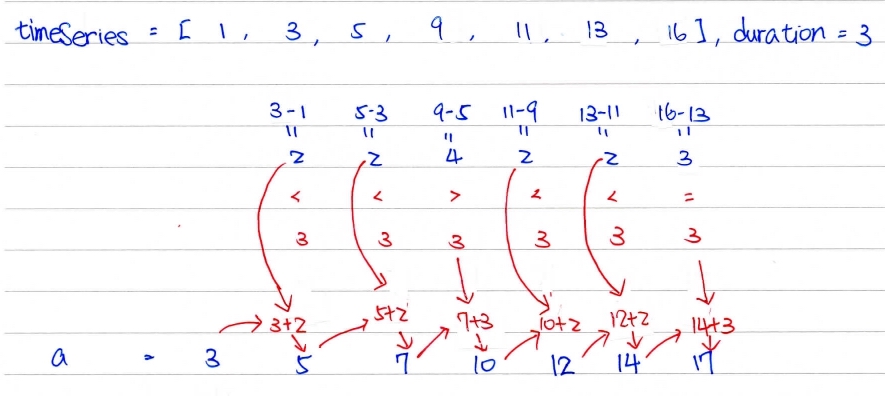 timeSeries = [ 1, 3, 5, 9, 11, 13, 16 ], duration = 3
3-1 5-3 9-5 11-9 13-11 16-13
" " " " " "
2 2 4 2 2 3
< < > < < =
3 3 3 3 3 3
3+2 5+2 7+3 10+2 12+2 14+3
a = 3 5 7 10 12 14 17